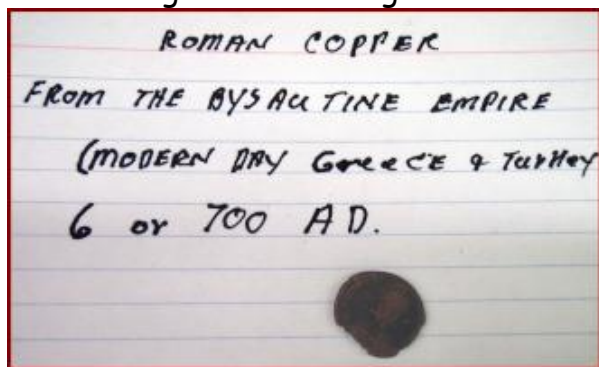 ROMAN COPPER
FROM THE BYSAUTINE EMPIRE
(MODERN DAY GreeCE & TurKey
6 or 700 AD.